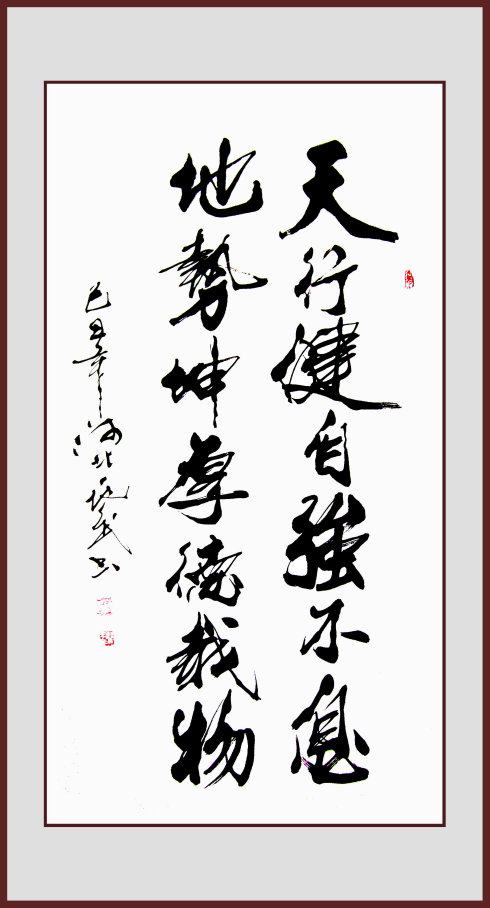 天行健自強不息
地勢坤厚德載物
己丑年河北書